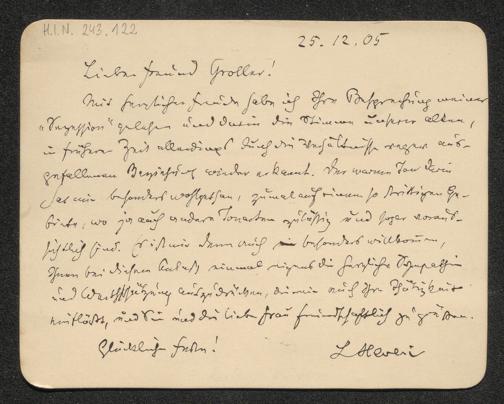 H.I.N. 243.122
25.12.05
Lieber Freund Groller!
Mit herzlicher Freude habe ich Ihre Besprechung meiner
"Secession" gelesen und darin die Stimme unserer alten,
in früherer Zeit allerdings durch die Verhältnisse reger aus-
gefallenen Beziehung wieder erkannt. Der warme Ton darin
hat mir besonders wohlgethan, zumal auf einem so strittigen Ge-
biete, wo ja auch andere Tonarten zulässig und sogar voraus-
sichtlich sind. Es ist mir denn auch besonders willkommen,
Ihnen bei diesem Anlaß einmal eigens die herzliche Sympathie
und Wertschätzung auszudrücken, die mir auch Ihre Thätigkeit
einflößt, und Sie und die liebe Frau freundschaftlich zu grüßen.
Glückliche Feste!
L Hevesi